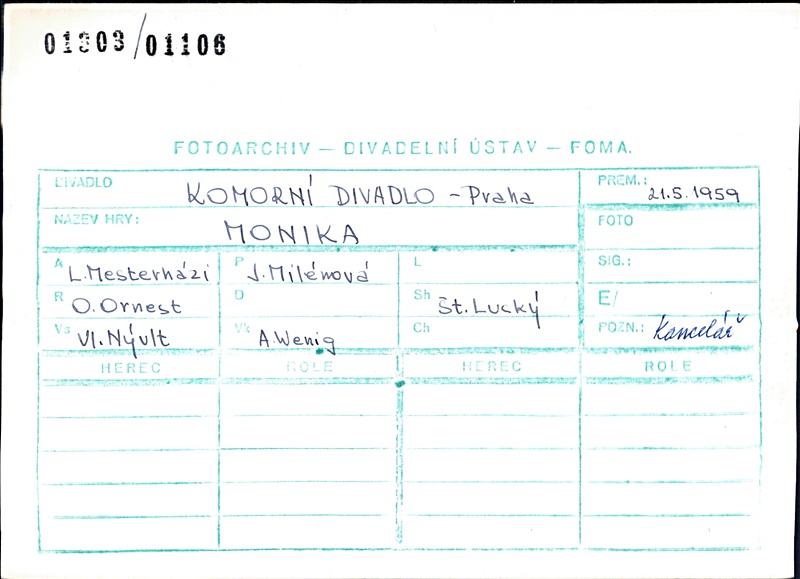 01303/01106
FOTOARCHIV — DIVADELNÍ ÚSTAV — FOMA.
DIVADLO KOMORNÍ DIVADLO - Praha PREM.: 21.5.1959
NÁZEV HRY: MONIKA FOTO
A L. Mesterházi P J. Milénová L SIG.:
R O. Ornest D Sh Št. Lucký E/
Vs Vl. Nývlt Vk A. Wenig Ch POZN.: Kancelář
HEREC ROLE HEREC ROLE